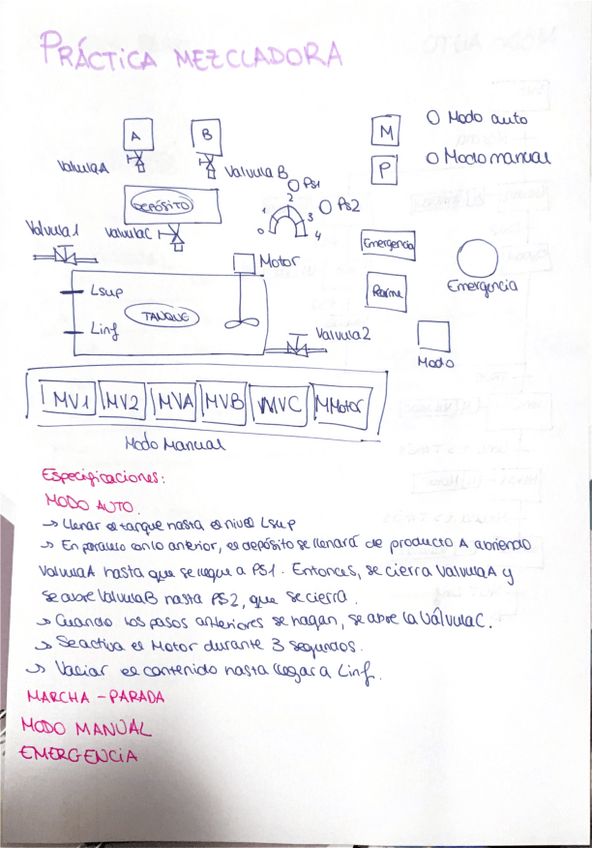 PRÁCTICA MEZCLADORA
A
B
M
O Modo auto
ValvulaA
Valvula B
P
O Modo manual
PS1
DEPÓSITO
0
1
2
3
4
PS2
Valvula1
valvulaC
Motor
Emergencia
Lsup
Rearme
Emergencia
TANQUE
Linf
Valvula2
Modo
MV1
MV2
MVA
MVB
MVC
MMotor
Modo Manual
Especificaciones:
MODO AUTO.
→ Llenar el tanque hasta el nivel Lsup
→ En paralelo con lo anterior, el depósito se llenará de producto A abriendo
ValvulaA hasta que se llegue a PS1. Entonces, se cierra ValvulaA y
se abre ValvulaB hasta PS2, que se cierra.
→ Cuando los pasos anteriores se hagan, se abre la VálvulaC.
→ Se activa el Motor durante 3 segundos.
→ Vaciar el contenido hasta llegar a Linf.
MARCHA - PARADA
MODO MANUAL
EMERGENCIA